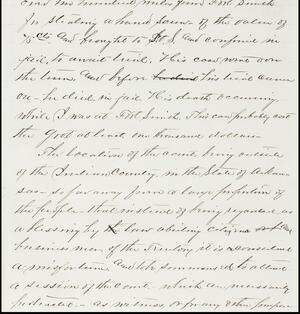 one two hundred miles from Fort Smith
for stealing a hand saw of the value of
75 cts and brought to Ft. S. and confined in
jail to await trial. His case was on
the term and before his trial came
on - he died in jail His death occurring
while I was at Fort Smith. This can probably cost
the Govt at least one thousand dollars -
The location of the court being outside
of the Indian Country, in the State of Arkan
sas - so far away from a large proportion of
the people - that instead of being regarded as
a blessing by law abiding citizens
business men of the Territory it is considered
a misfortune and to be summoned to attend
a session of the court - which an necessarily
protracted - as witness, or for any other purpose